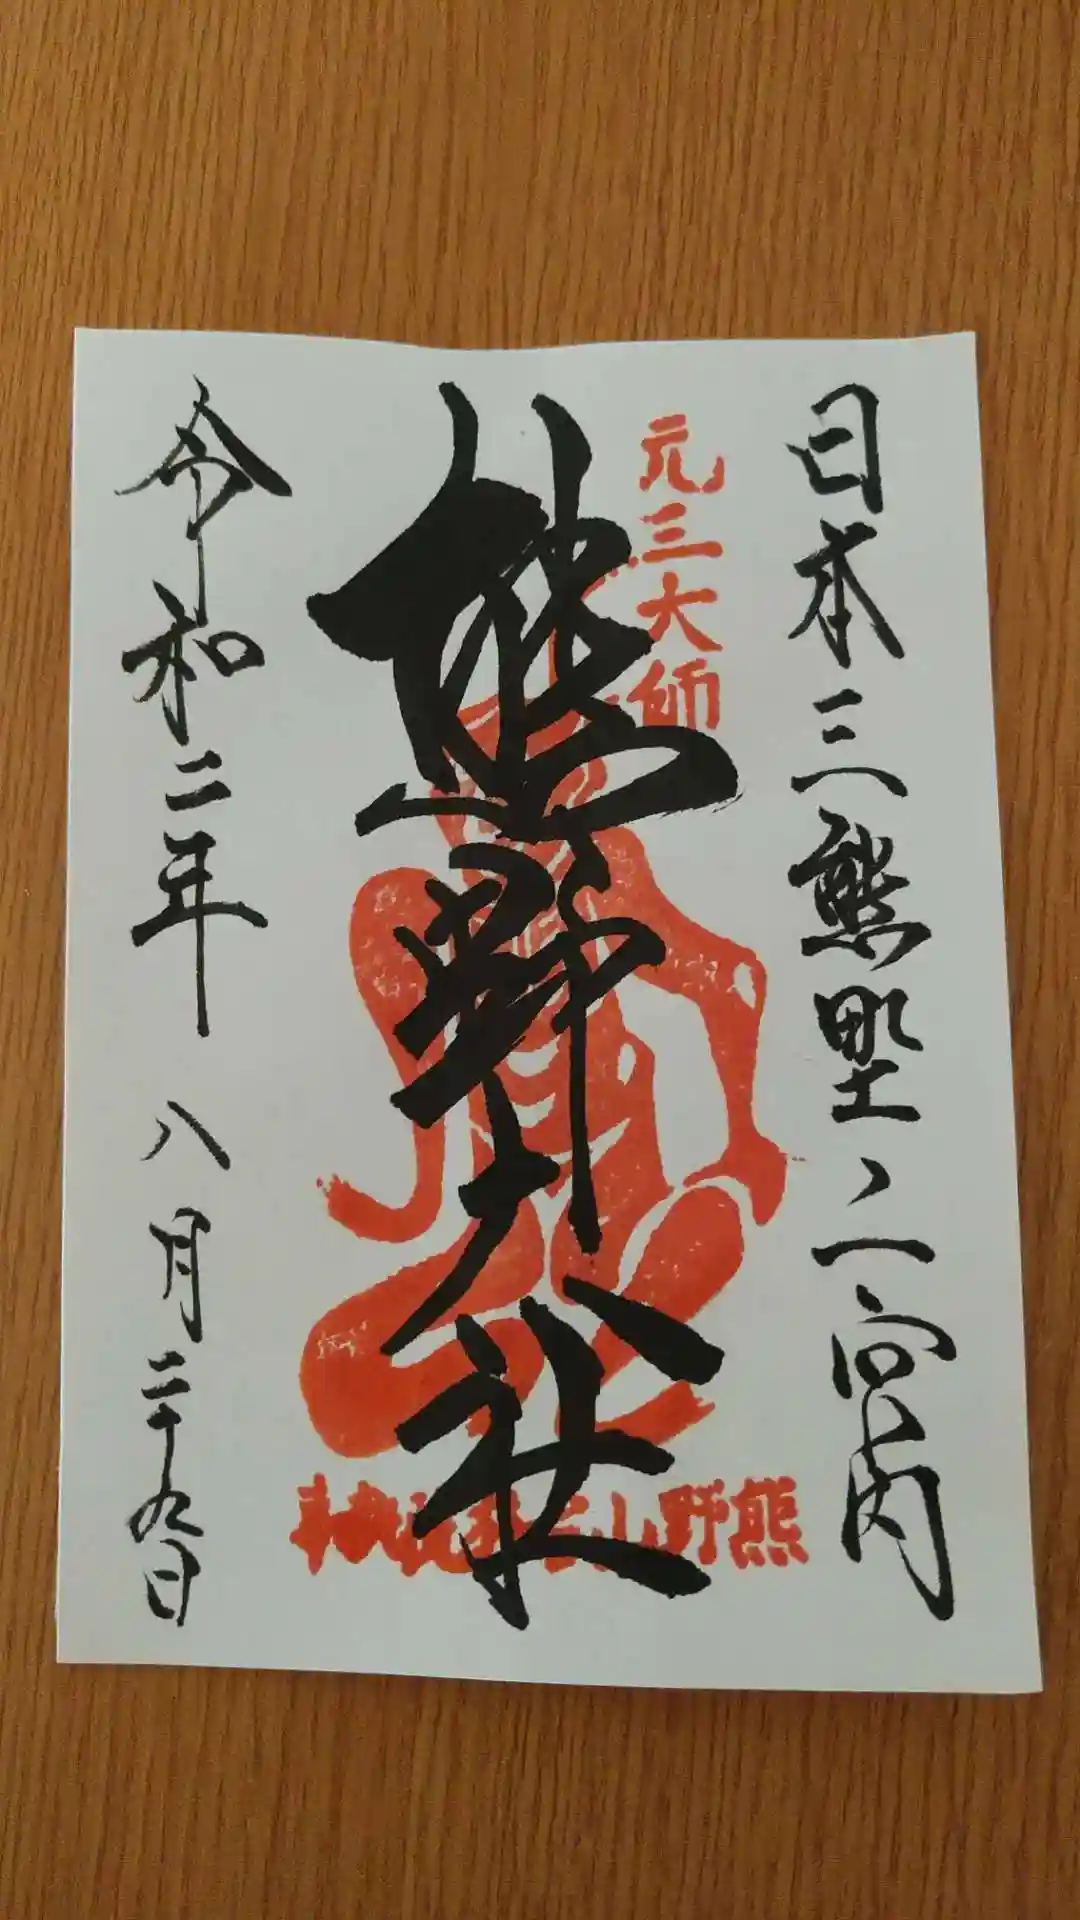 日本三熊野ノ一宮内
元三大師
熊野大社
熊野山
令和二年 八月二十九日